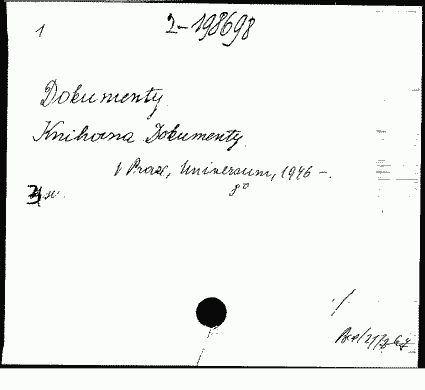 1
2-198698
Dokumenty
Knihovna Dokumenty
V Praze, Universum, 1946 -.
8°
sv.